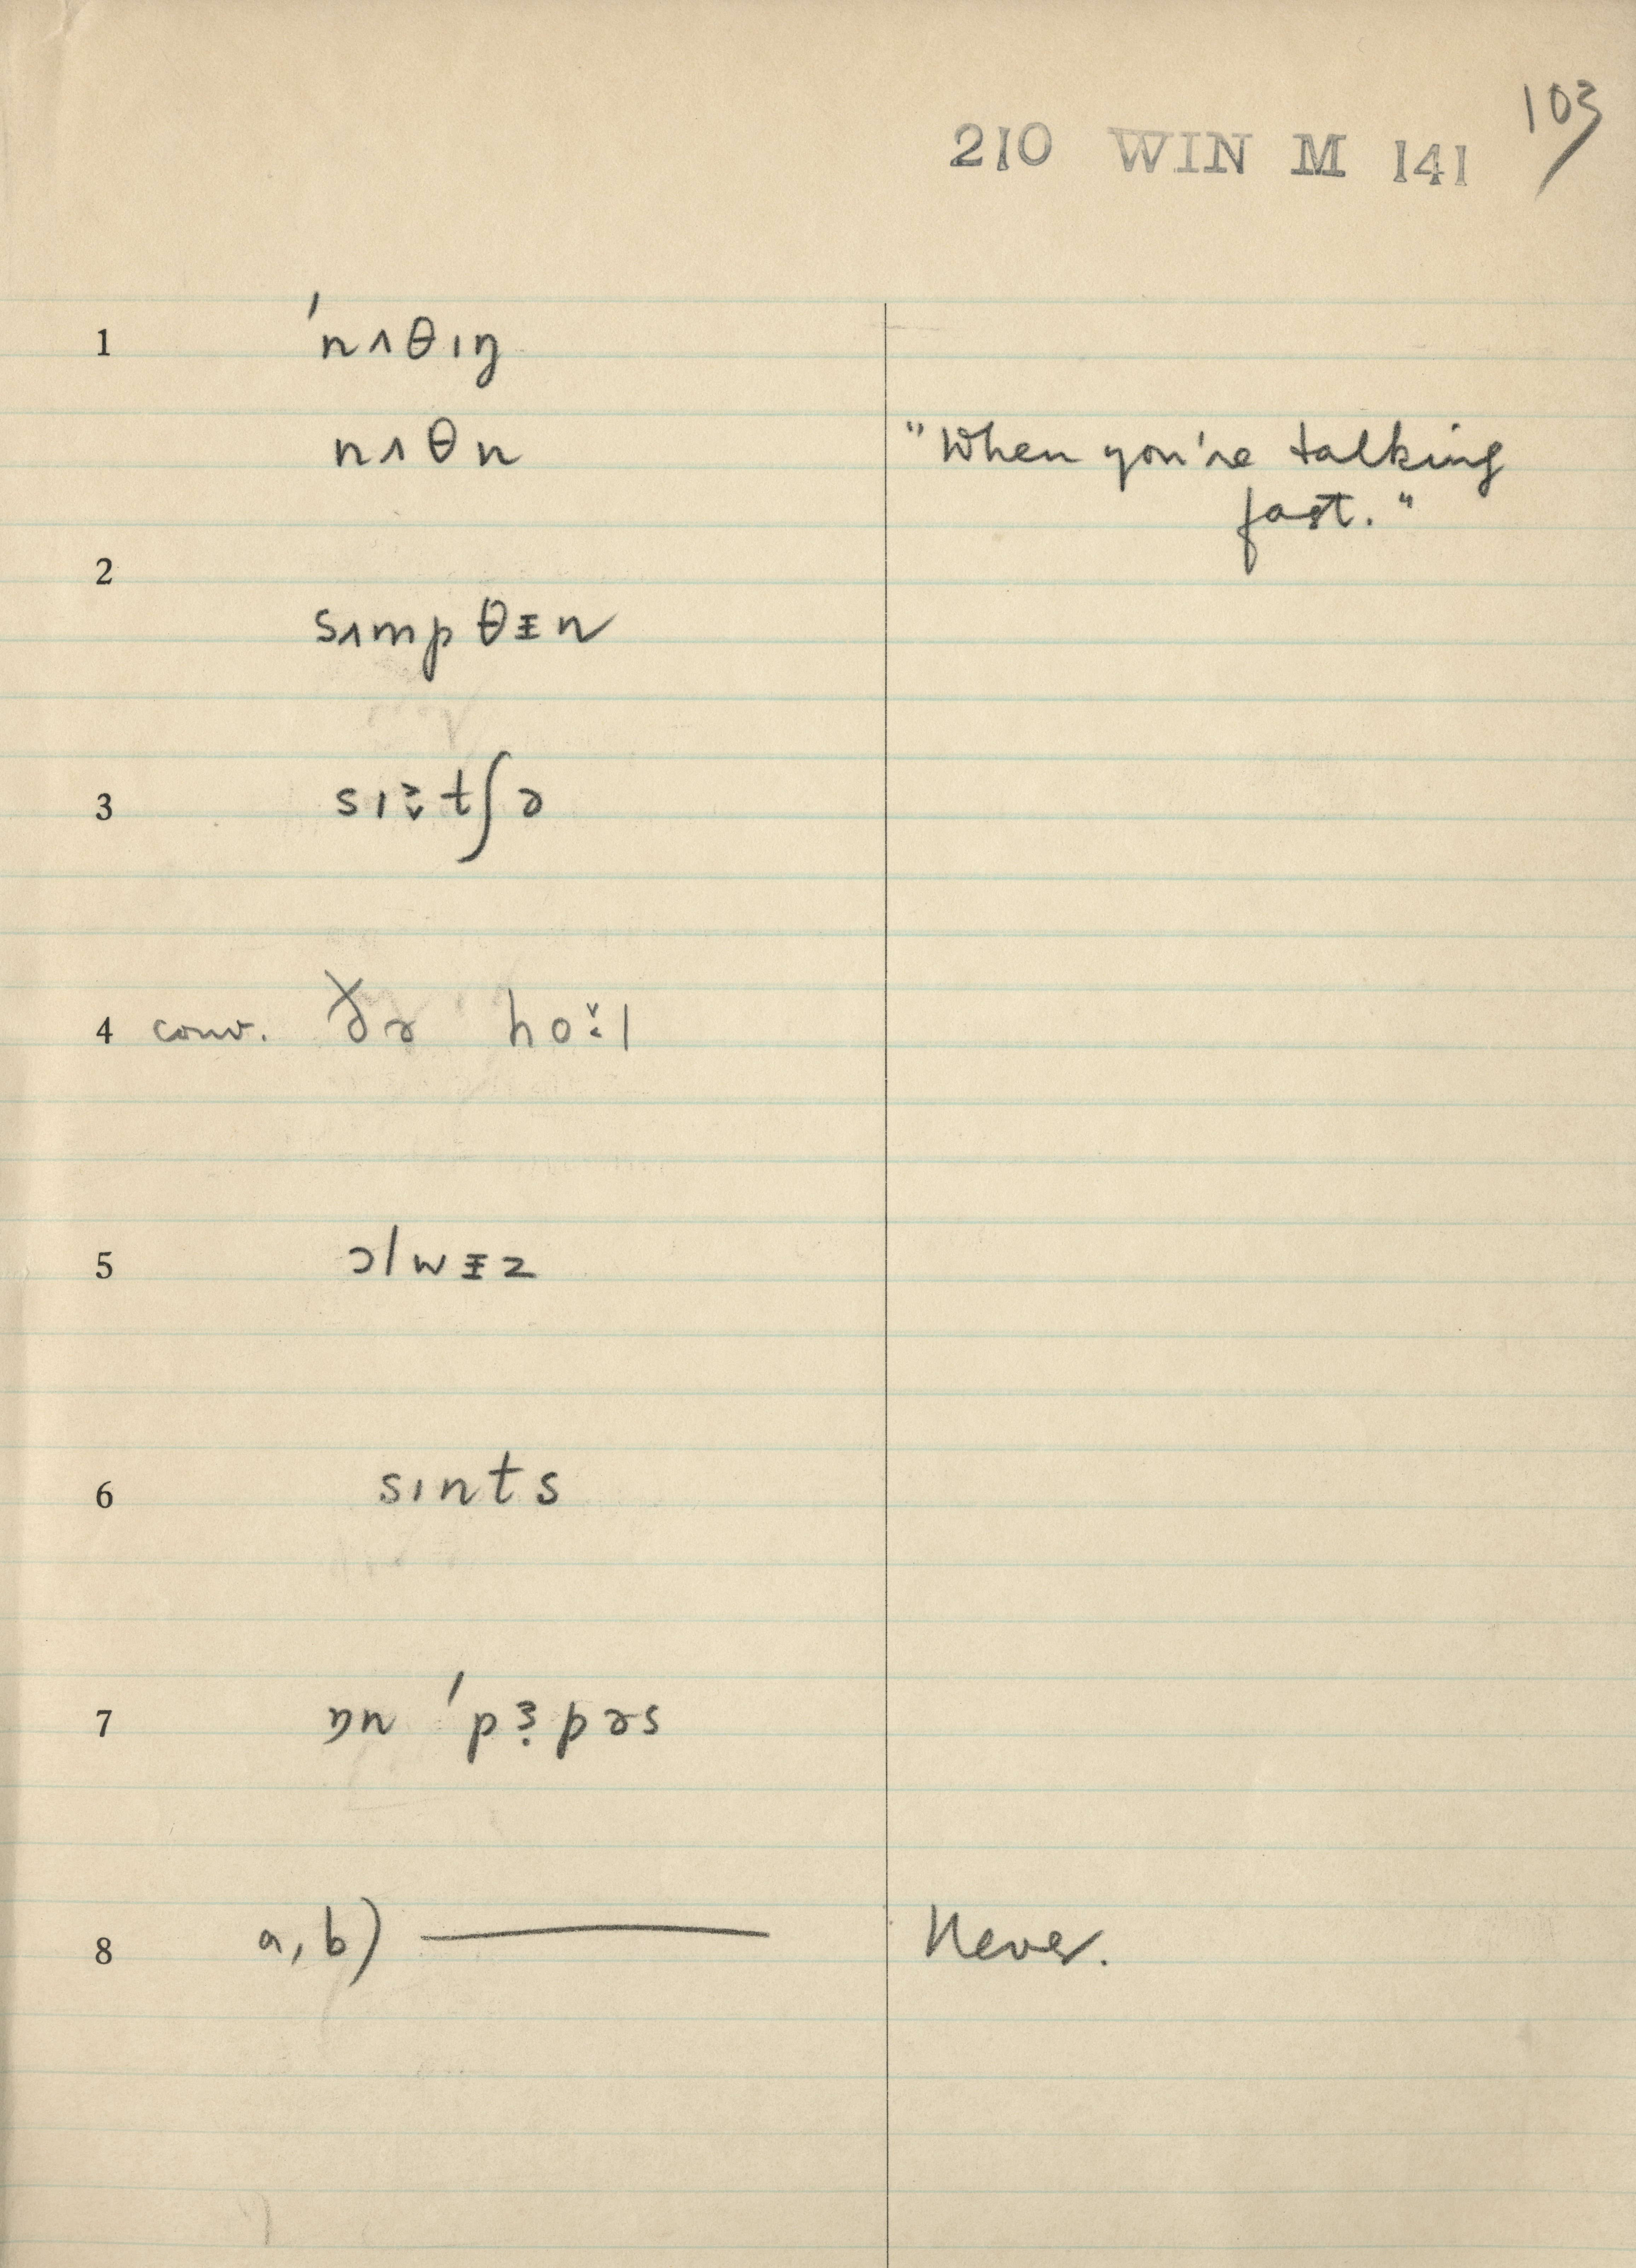 103
210 WIN M 141
1 ˈnʌθɪŋ
nʌθn "When you're talking
fast."
2
sʌmpθᵻn
3 sɪ tʃə
4 conv. ðə hoˑl
5 ɔlwᵻz
6 sɪnts
7 ɒn ˈpɜpəs
8 a, b) — Never.